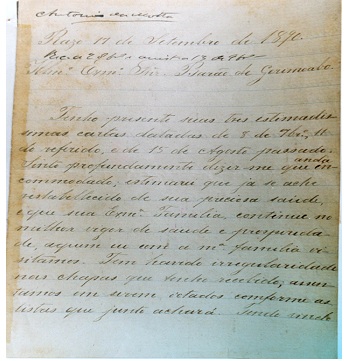 Antonio da Motta
Razo 17 de Setembro de 1890
Illmo. Exmo. Snr. Barão de Geremoabo
Tenho presente suas tres estimadas
cartas datadas de 8 de 7bro. 11
do referido, e de 15 de Agosto passado.
Sinto profundamente dizer-me que anda en-
commodado; estimarei que já se ache
restabelecido de sua preciosa saúde,
e que sua Exma. Familia, continue no
melhor vigor de saude e prosperida-
de, a quem eu em. e ma. familia vi-
sitamos. Tem havido irregularidade
nas chapas que tenho recebido,
em serem votados conforme as
listas que junto achará. Tendo